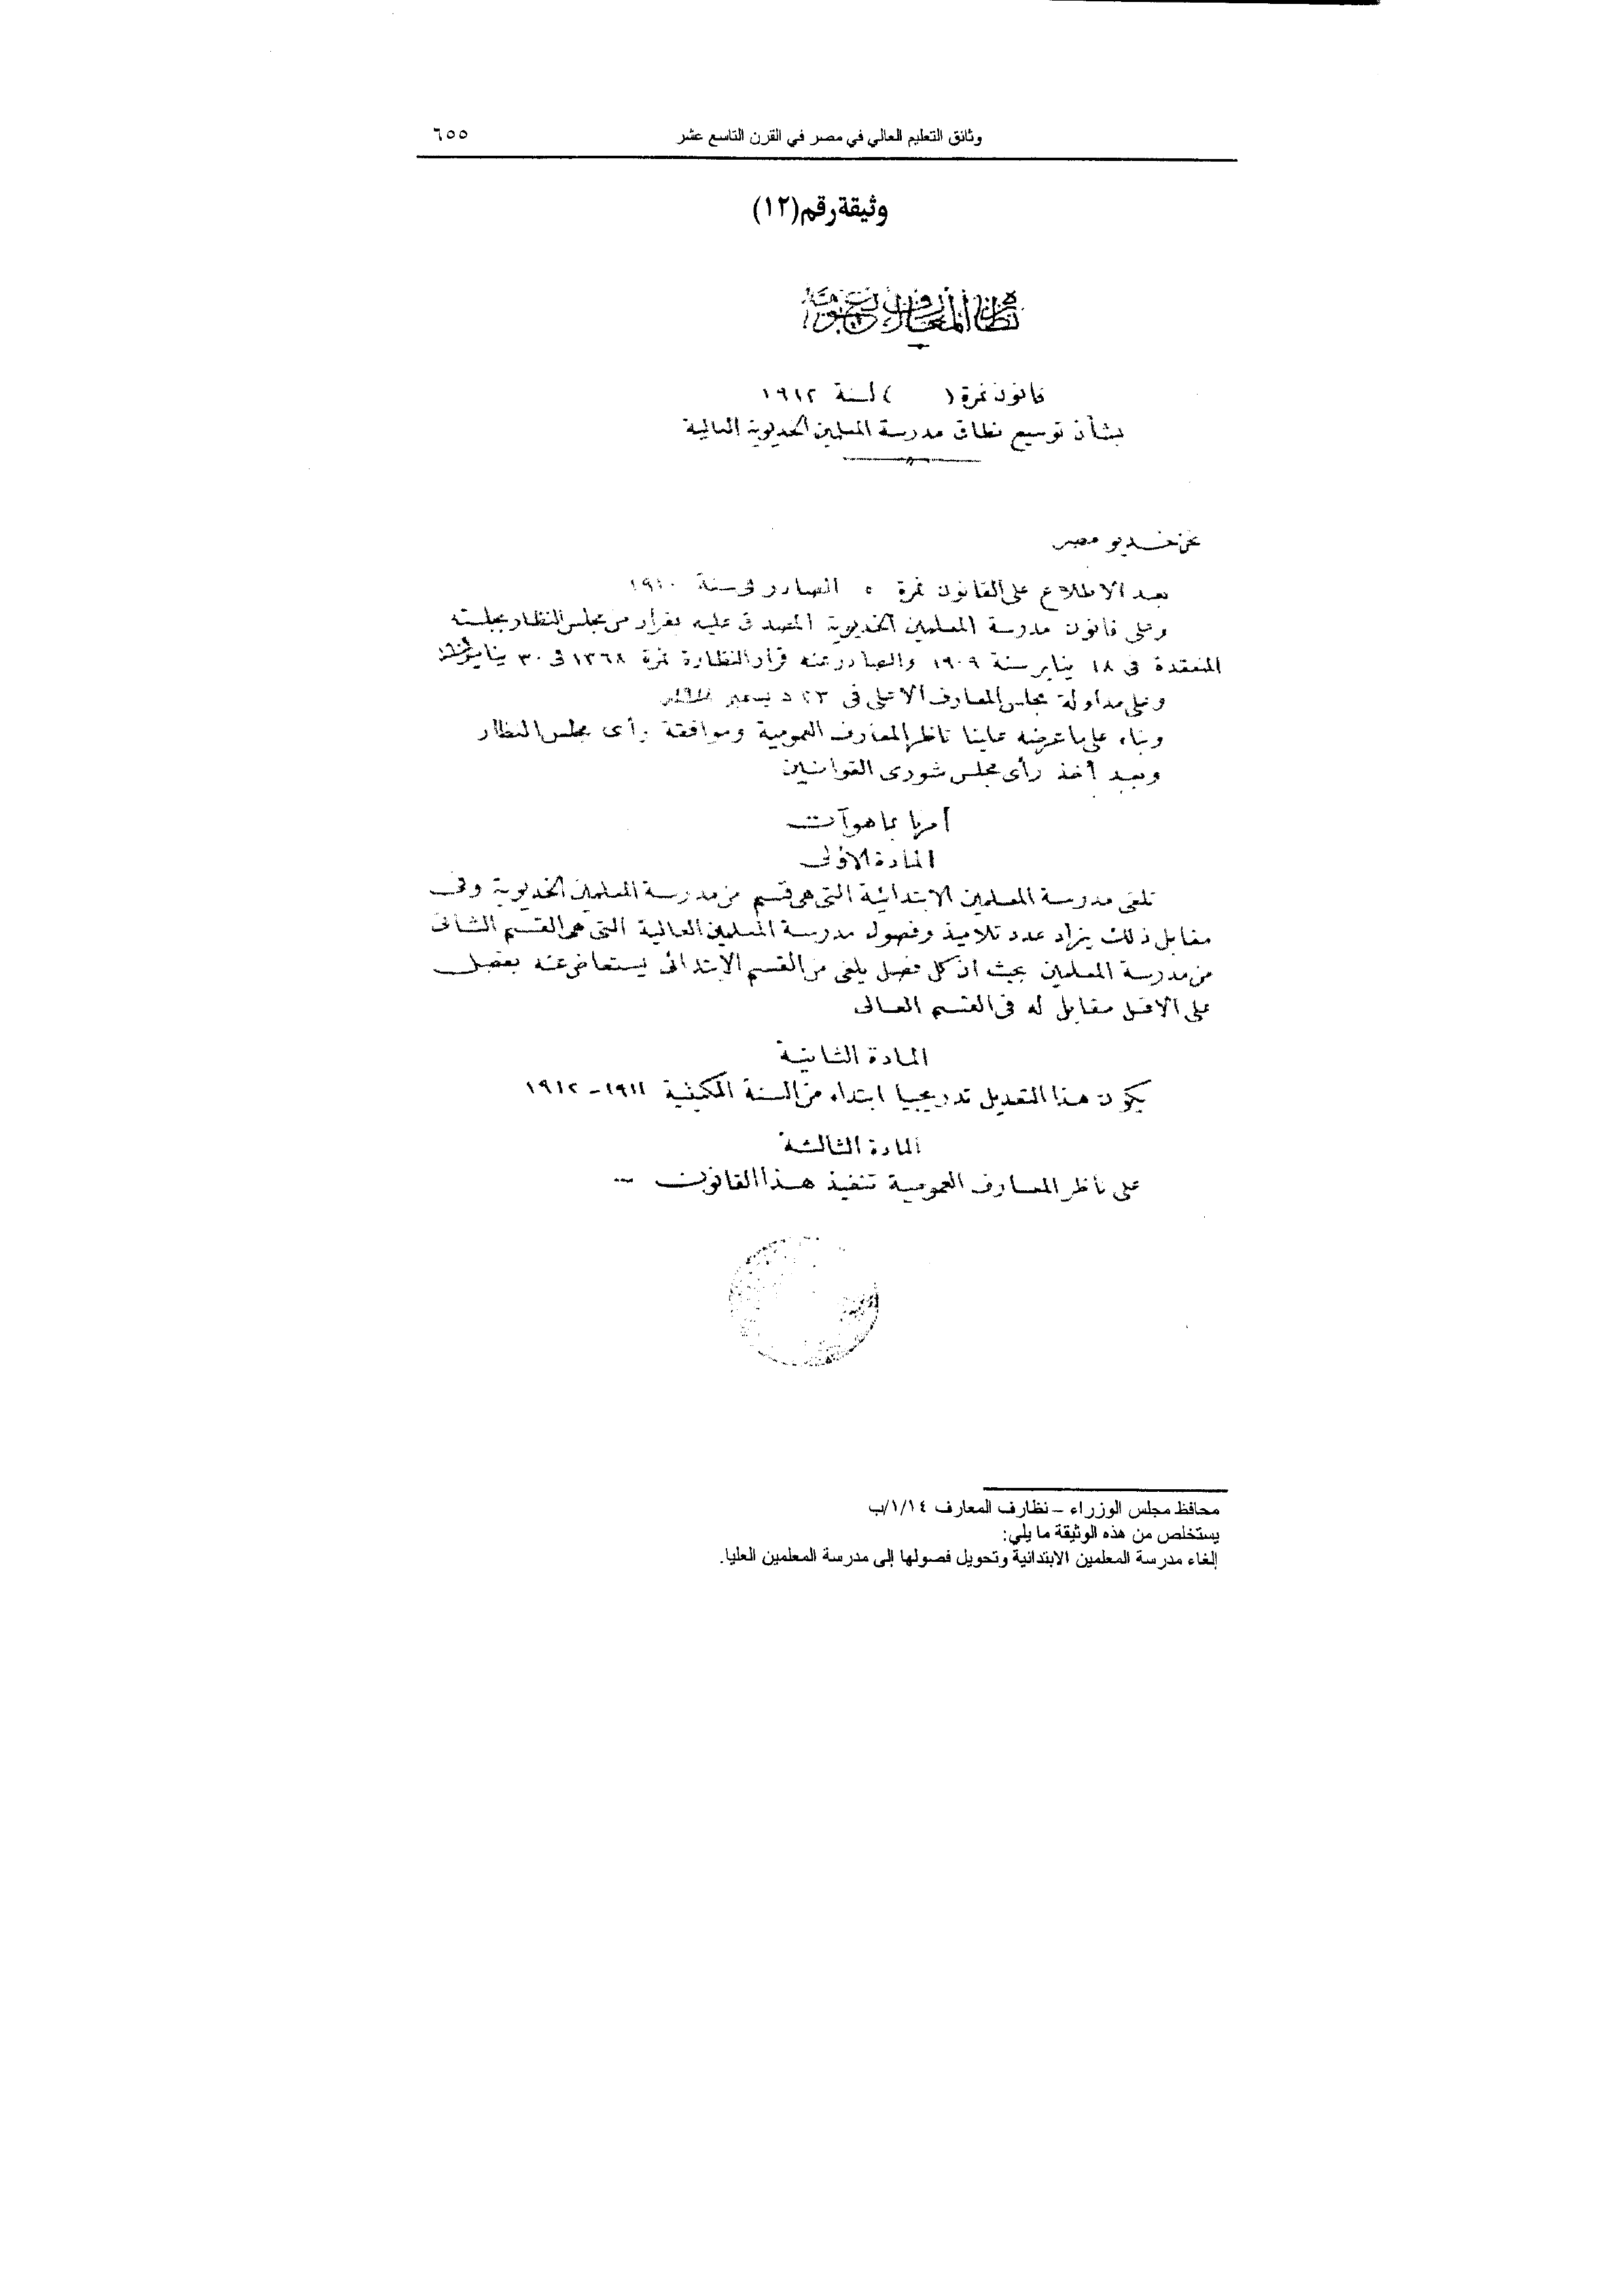 وثائق التعليم العالي في مصر في القرن التاسع عشر ٦٥٥
وثيقة رقم (١٢)
نظارة المعارف العمومية
قانون نمرة ( ) لسنة ١٩١٢
بشأن توسيع نطاق مدرسة المعلمين الخديوية العالية
نحن خديو مصر
بعد الاطلاع على القانون نمرة ٥ الصادر فى سنة ١٩١٠
وعلى قانون مدرسة المعلمين الخديوية المصدق عليه بقرار من مجلس النظار بجلسته
المنعقدة فى ١٨ يناير سنة ١٩٠٩ والصادر عنه قرار النظارة نمرة ١٣٦٨ فى ٣٠ يناير
وعلى مداولة مجلس المعارف الاعلى فى ٢٣ ديسمبر
وبناء على ما عرضه علينا ناظر المعارف العمومية وموافقة رأى مجلس النظار
وبعد أخذ رأى مجلس شورى القوانين
أمرنا بما هو آت
المادة الاولى
تلغى مدرسة المعلمين الابتدائية التى هى قسم من مدرسة المعلمين الخديوية وفى
مقابل ذلك يزاد عدد تلاميذ وفصول مدرسة المعلمين العالية التى هى القسم الثانى
من مدرسة المعلمين بحيث ان كل فصل يلغى من القسم الابتدائى يستعاض عنه بفصل
على الاقل مقابل له فى القسم العالى
المادة الثانية
يكون هذا التعديل تدريجيا ابتداء من السنة المكتبية ١٩١١-١٩١٢
المادة الثالثة
على ناظر المعارف العمومية تنفيذ هذا القانون ...
محافظ مجلس الوزراء – نظارف المعارف ١/١٤/ب
يستخلص من هذه الوثيقة ما يلي:
إلغاء مدرسة المعلمين الابتدائية وتحويل فصولها إلى مدرسة المعلمين العليا.